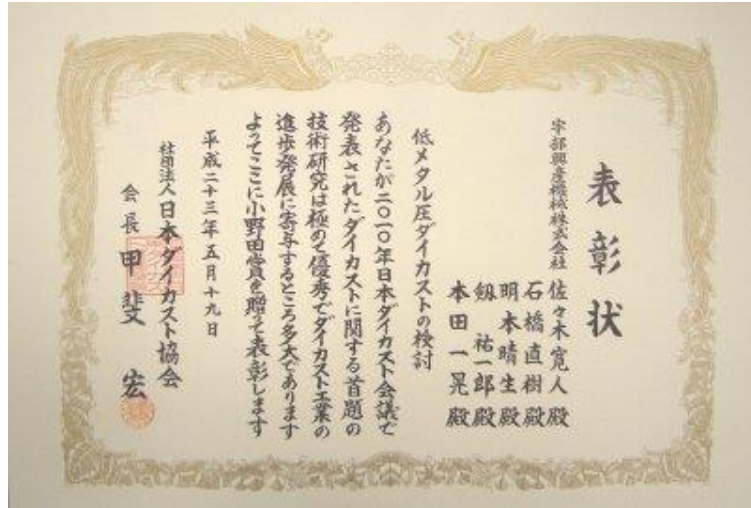 表彰状
宇部興産機械株式会社
佐々木寛人殿
石橋直樹殿
明本晴生殿
釼祐一郎殿
本田一晃殿
低メタル圧ダイカストの検討
あなたが二〇一〇年日本ダイカスト会議で
発表されたダイカストに関する首題の
技術研究は極めて優秀でダイカスト工業の
進歩発展に寄与するところ多大であります
よってここに小野田賞を贈って表彰します
平成二十三年五月十九日
社団法人日本ダイカスト協会
会長甲斐宏